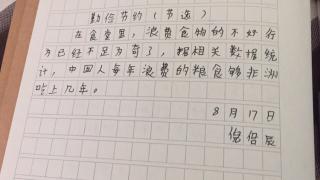 勤俭节约(节选)
在食堂里,浪费食物的不好行
为已经不足为奇了,据相关数据统
计,中国人每年浪费的粮食够非洲
吃上几年。
8月17日
倪倍辰